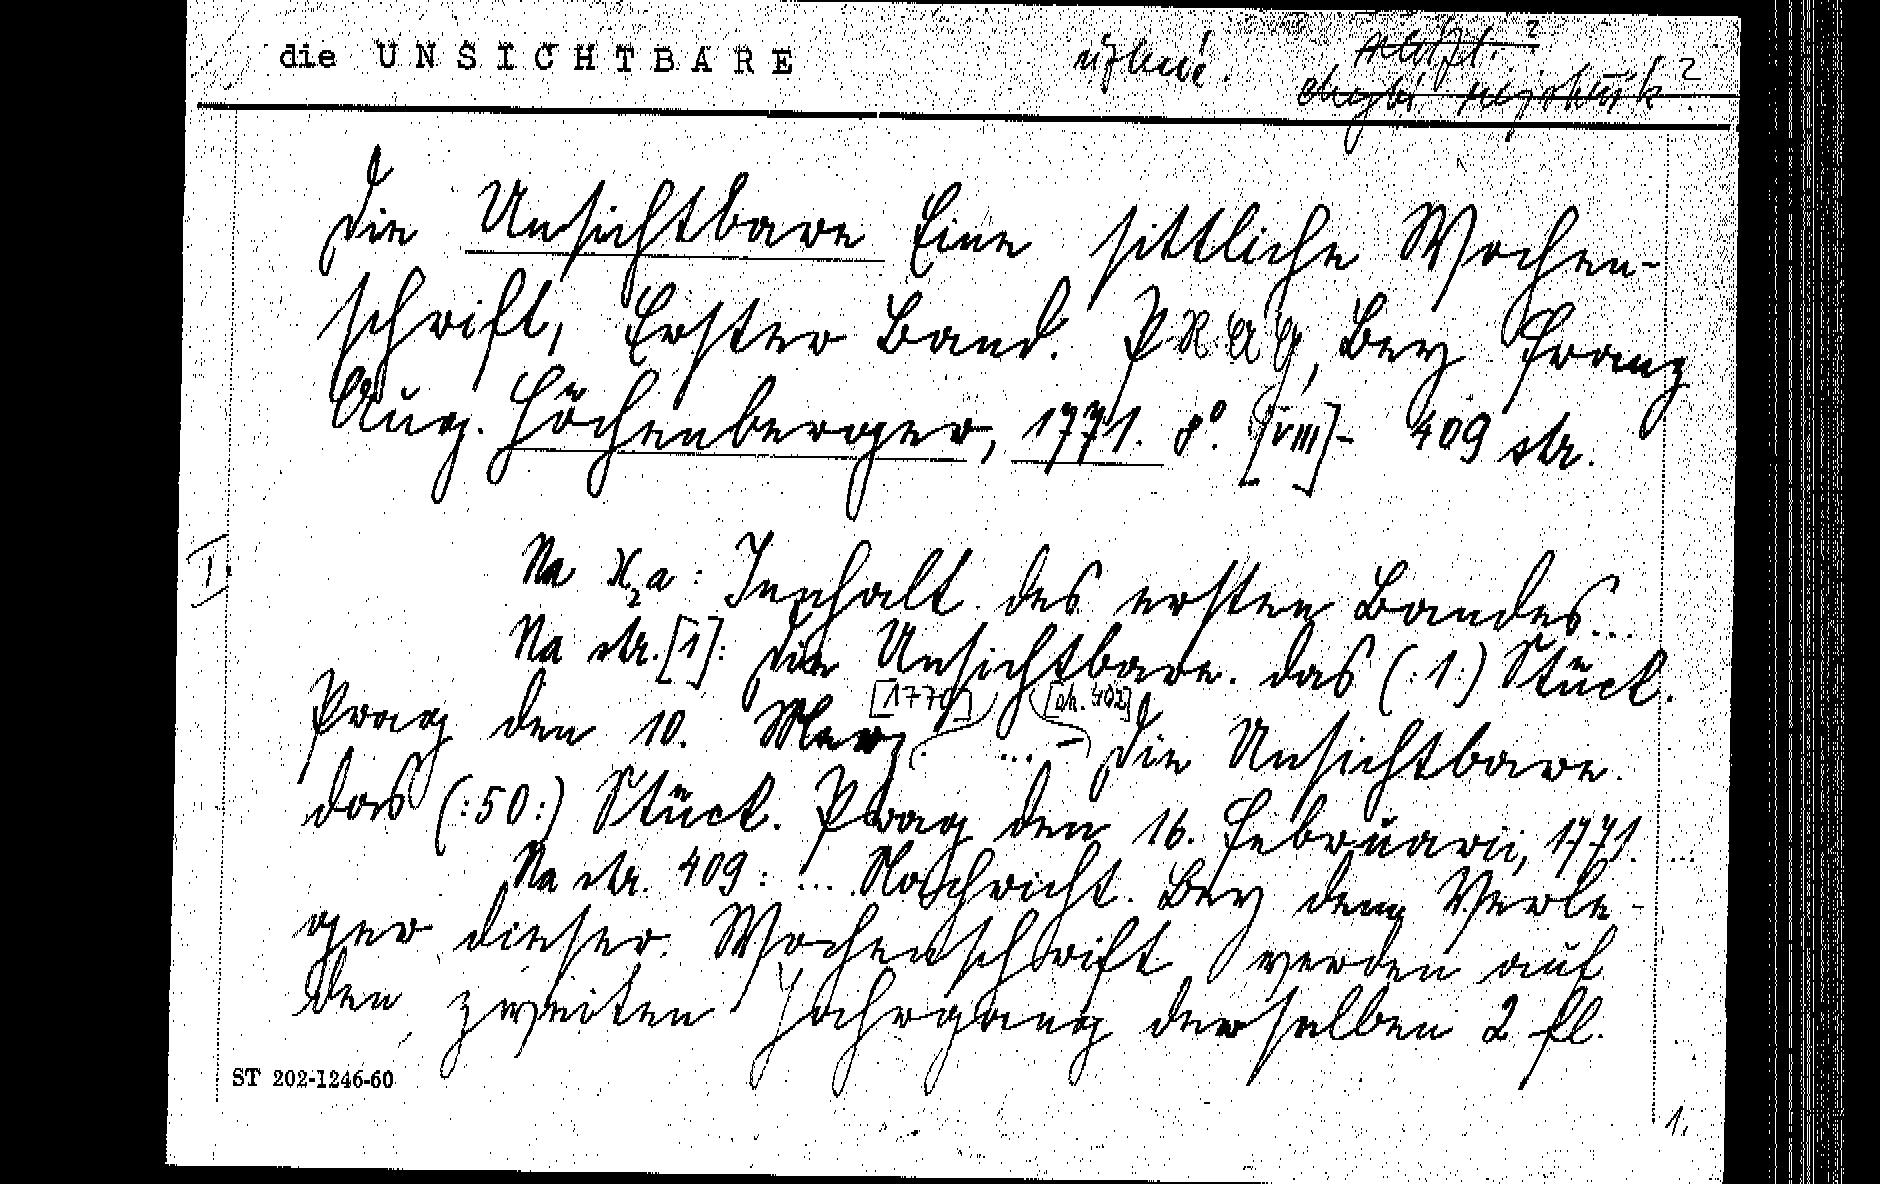 die UNSICHTBARE
Die Unsichtbare Eine sittliche Wochen-
schrift, Erster Band. PRAG, Bey Franz
Aug. Höchenberger, 1771. 8°. [VIII]- 409 str.
I.
Na X2a: Innhalt des ersten Bandes...
Na str.[1]: Die Unsichtbare. das (:1:) Stück.
[1770] [str. 402]
Prag den 10. Merz. ... - Die Unsichtbare.
das (:50:) Stück. Prag den 16. Februarii, 1771. ...
Na str. 409: ... Nachricht. Bey dem Verle-
ger dieser Wochenschrift werden auf
den zweiten Jahrgang derselben 2 fl.
ST 202-1246-60
1.